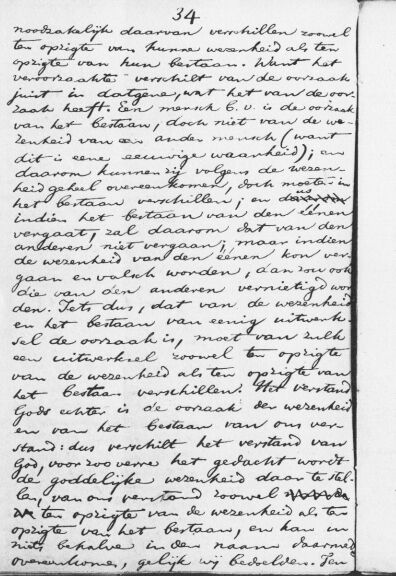 34
noodzakelijk daarvan verschillen zoowel
ten opzigte van hunne wezenheid als ten
opzigte van hun bestaan. Want het
veroorzaakte verschilt van de oorzaak
juist in datgene, wat het van de oor-
zaak heeft. Een mensch b.v. is de oorzaak
van het bestaan, doch niet van de we-
zenheid van een ander mensch (want
dit is eene eeuwige waarheid); en
daarom kunnen zij volgens de wezen-
heid geheel overeenkomen, doch moeten in
het bestaan verschillen; en
indien het bestaan van den éénen
vergaat, zal daarom dat van den
anderen niet vergaan; maar indien
de wezenheid van den éénen kon ver-
gaan en valsch worden, dan zou ook
die van den anderen vernietigd wor
den. Iets dus, dat van de wezenheid
en het bestaan van eenig uitwerk-
sel de oorzaak is, moet van zulk
een uitwerksel zoowel ten opzigte
van de wezenheid als ten opzigte van
het bestaan verschillen. Het verstand
Gods echter is de oorzaak der wezenheid
en van het bestaan van ons ver-
stand: dus verschilt het verstand van
God, voor zoo verre het gedacht wordt
de goddelijke wezenheid daar te stel-
len, van ons verstand zoowel
ten opzigte van de wezenheid als ten
opzigte van het bestaan, en kan in
niets behalve in den naam daarmeê
overeenkomen, gelijk wij bedoelden. Ten